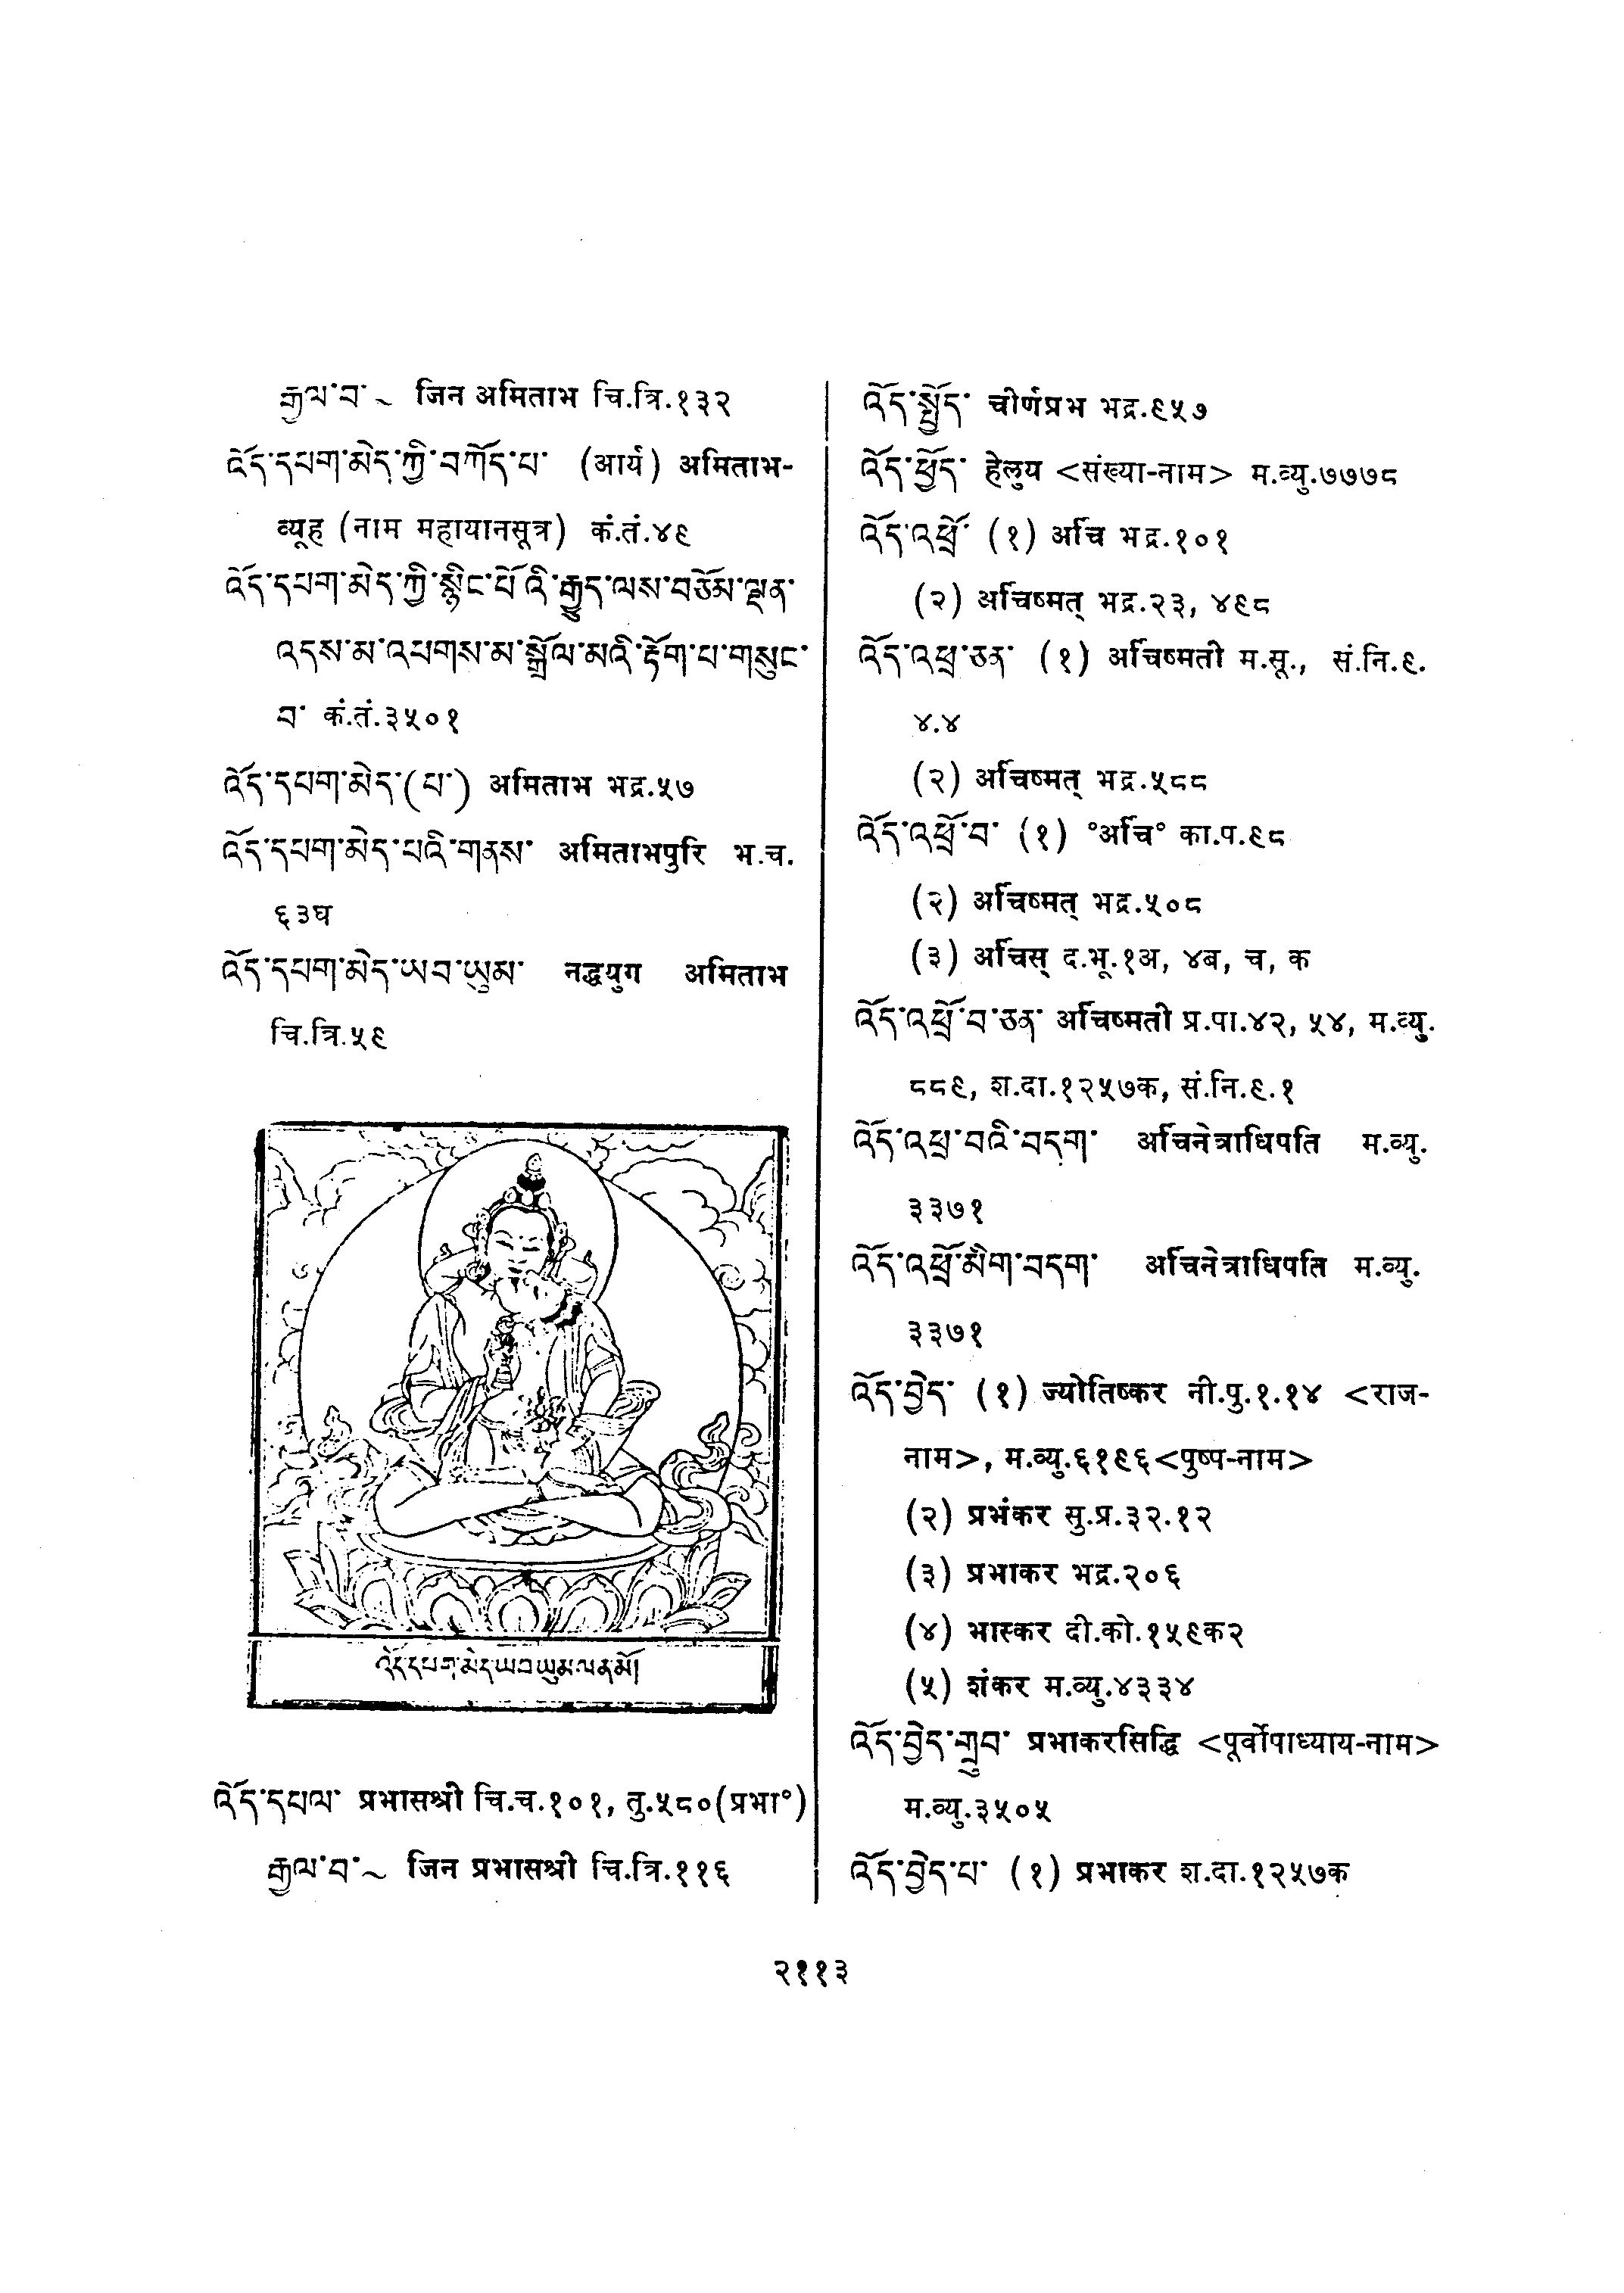 རྒྱལ་བ་ ~ जिन अमिताभ चि.त्रि.१३२
འོད་དཔག་མེད་ཀྱི་བཀོད་པ་ (आर्य) अमिताभ-
व्यूह (नाम महायानसूत्र) कं.तं.४९
འོད་དཔག་མེད་ཀྱི་སྙིང་པོའི་རྒྱུད་ལས་བཅོམ་ལྡན་
འདས་མ་འཕགས་མ་སྒྲོལ་མའི་རྟོག་པ་གསུང་
བ་ कं.तं.३५०१
འོད་དཔག་མེད་(པ་) अमिताभ भद्र.५७
འོད་དཔག་མེད་པའི་གནས་ अमिताभपुरि भ.च.
६३घ
འོད་དཔག་མེད་ཡབ་ཡུམ་ नद्धयुग अमिताभ
चि.त्रि.५९
འོད་དཔག་མེད་ཡབ་ཡུམ་ལ་ན་མོ།
འོད་དཔལ་ प्रभासश्री चि.च.१०१, तु.५८०(प्रभा°)
རྒྱལ་བ་ ~ जिन प्रभासश्री चि.त्रि.११६
འོད་སྤྱོད་ चीर्णप्रभ भद्र.९५७
འོད་ཕྱོད་ हेलुय <संख्या-नाम> म.व्यु.७७७८
འོད་འཕྲོ་ (१) अर्चि भद्र.१०१
(२) अर्चिष्मत् भद्र.२३, ४९८
འོད་འཕྲ་ཅན་ (१) अर्चिष्मती म.सू., सं.नि.९.
४.४
(२) अर्चिष्मत् भद्र.५८८
འོད་འཕྲོ་བ་ (१) °अर्चि° का.प.९८
(२) अर्चिष्मत् भद्र.५०८
(३) अर्चिस् द.भू.१अ, ४ब, च, क
འོད་འཕྲོ་བ་ཅན་ अर्चिष्मती प्र.पा.४२, ५४, म.व्यु.
८८९, श.दा.१२५७क, सं.नि.९.१
འོད་འཕྲ་བའི་བདག་ अर्चिनेत्राधिपति म.व्यु.
३३७१
འོད་འཕྲོ་མིག་བདག་ अर्चिनेत्राधिपति म.व्यु.
३३७१
འོད་བྱེད་ (१) ज्योतिष्कर नी.पु.१.१४ <राज-
नाम>, म.व्यु.६१९६<पुष्प-नाम>
(२) प्रभंकर सु.प्र.३२.१२
(३) प्रभाकर भद्र.२०६
(४) भास्कर दी.को.१५९क२
(५) शंकर म.व्यु.४३३४
འོད་བྱེད་གྲུབ་ प्रभाकरसिद्धि <पूर्वोपाध्याय-नाम>
म.व्यु.३५०५
འོད་བྱེད་པ་ (१) प्रभाकर श.दा.१२५७क
२११३